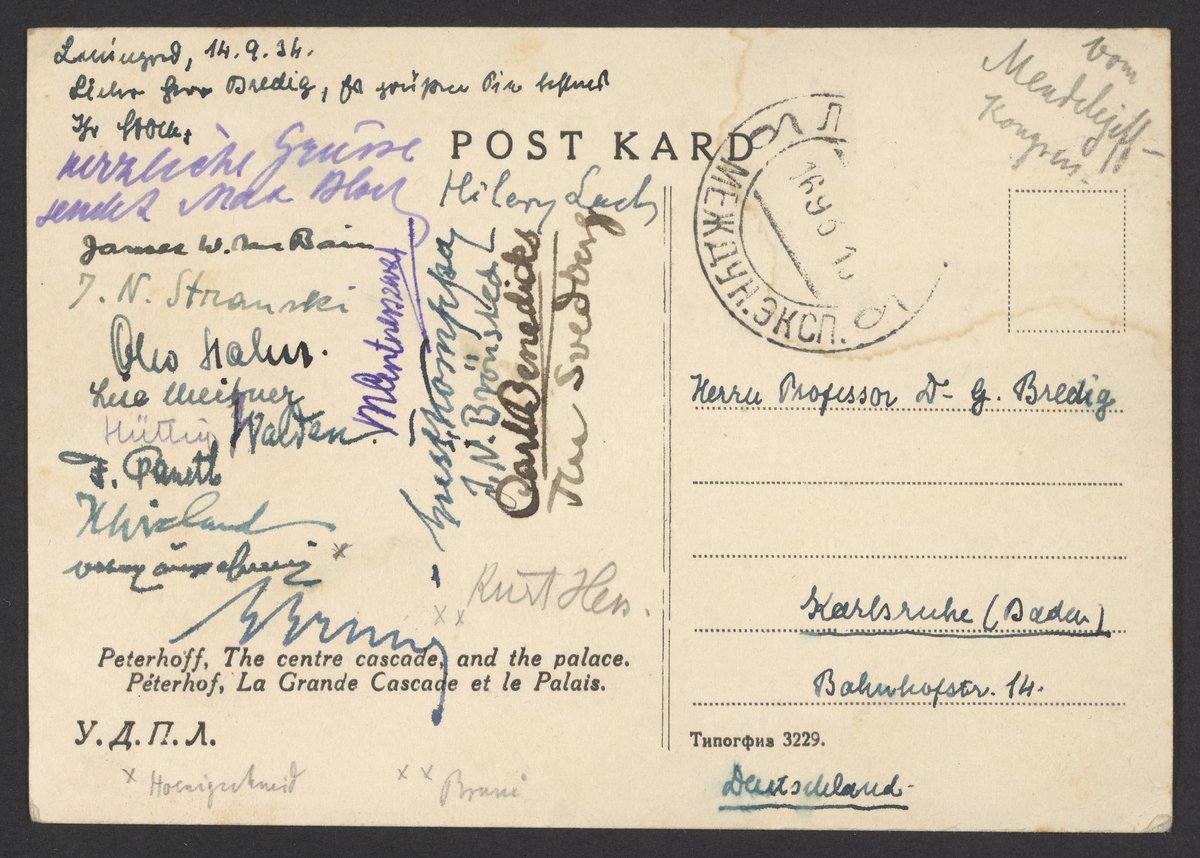 Leningrad, 14.9.34.
Lieber Herr Bredig, es grüßen Sie bestens
Ihr
herzliche Grüsse
sendet Max
James W. McBain
I. N. Stranski
Otto Hahn.
Lise Meitner
Hüttig Walden.
F. Paneth
x
Hilary Lach
J. N. Brönsted
Carl Benedicks
The Svedberg
x x
Kurt Hess.
POST KARD
vom
Mendelejeff-
Kongress.
Л
МЕЖДУН. ЭКСП.
Herrn Professor Dr G. Bredig
Karlsruhe (Baden)
Bahnhofstr. 14.
Deutschland
Peterhoff, The centre cascade, and the palace.
Péterhof, La Grande Cascade et le Palais.
У.Д.П.Л.
Типогфиз 3229.
x Hoenigschmid
x x Bruni